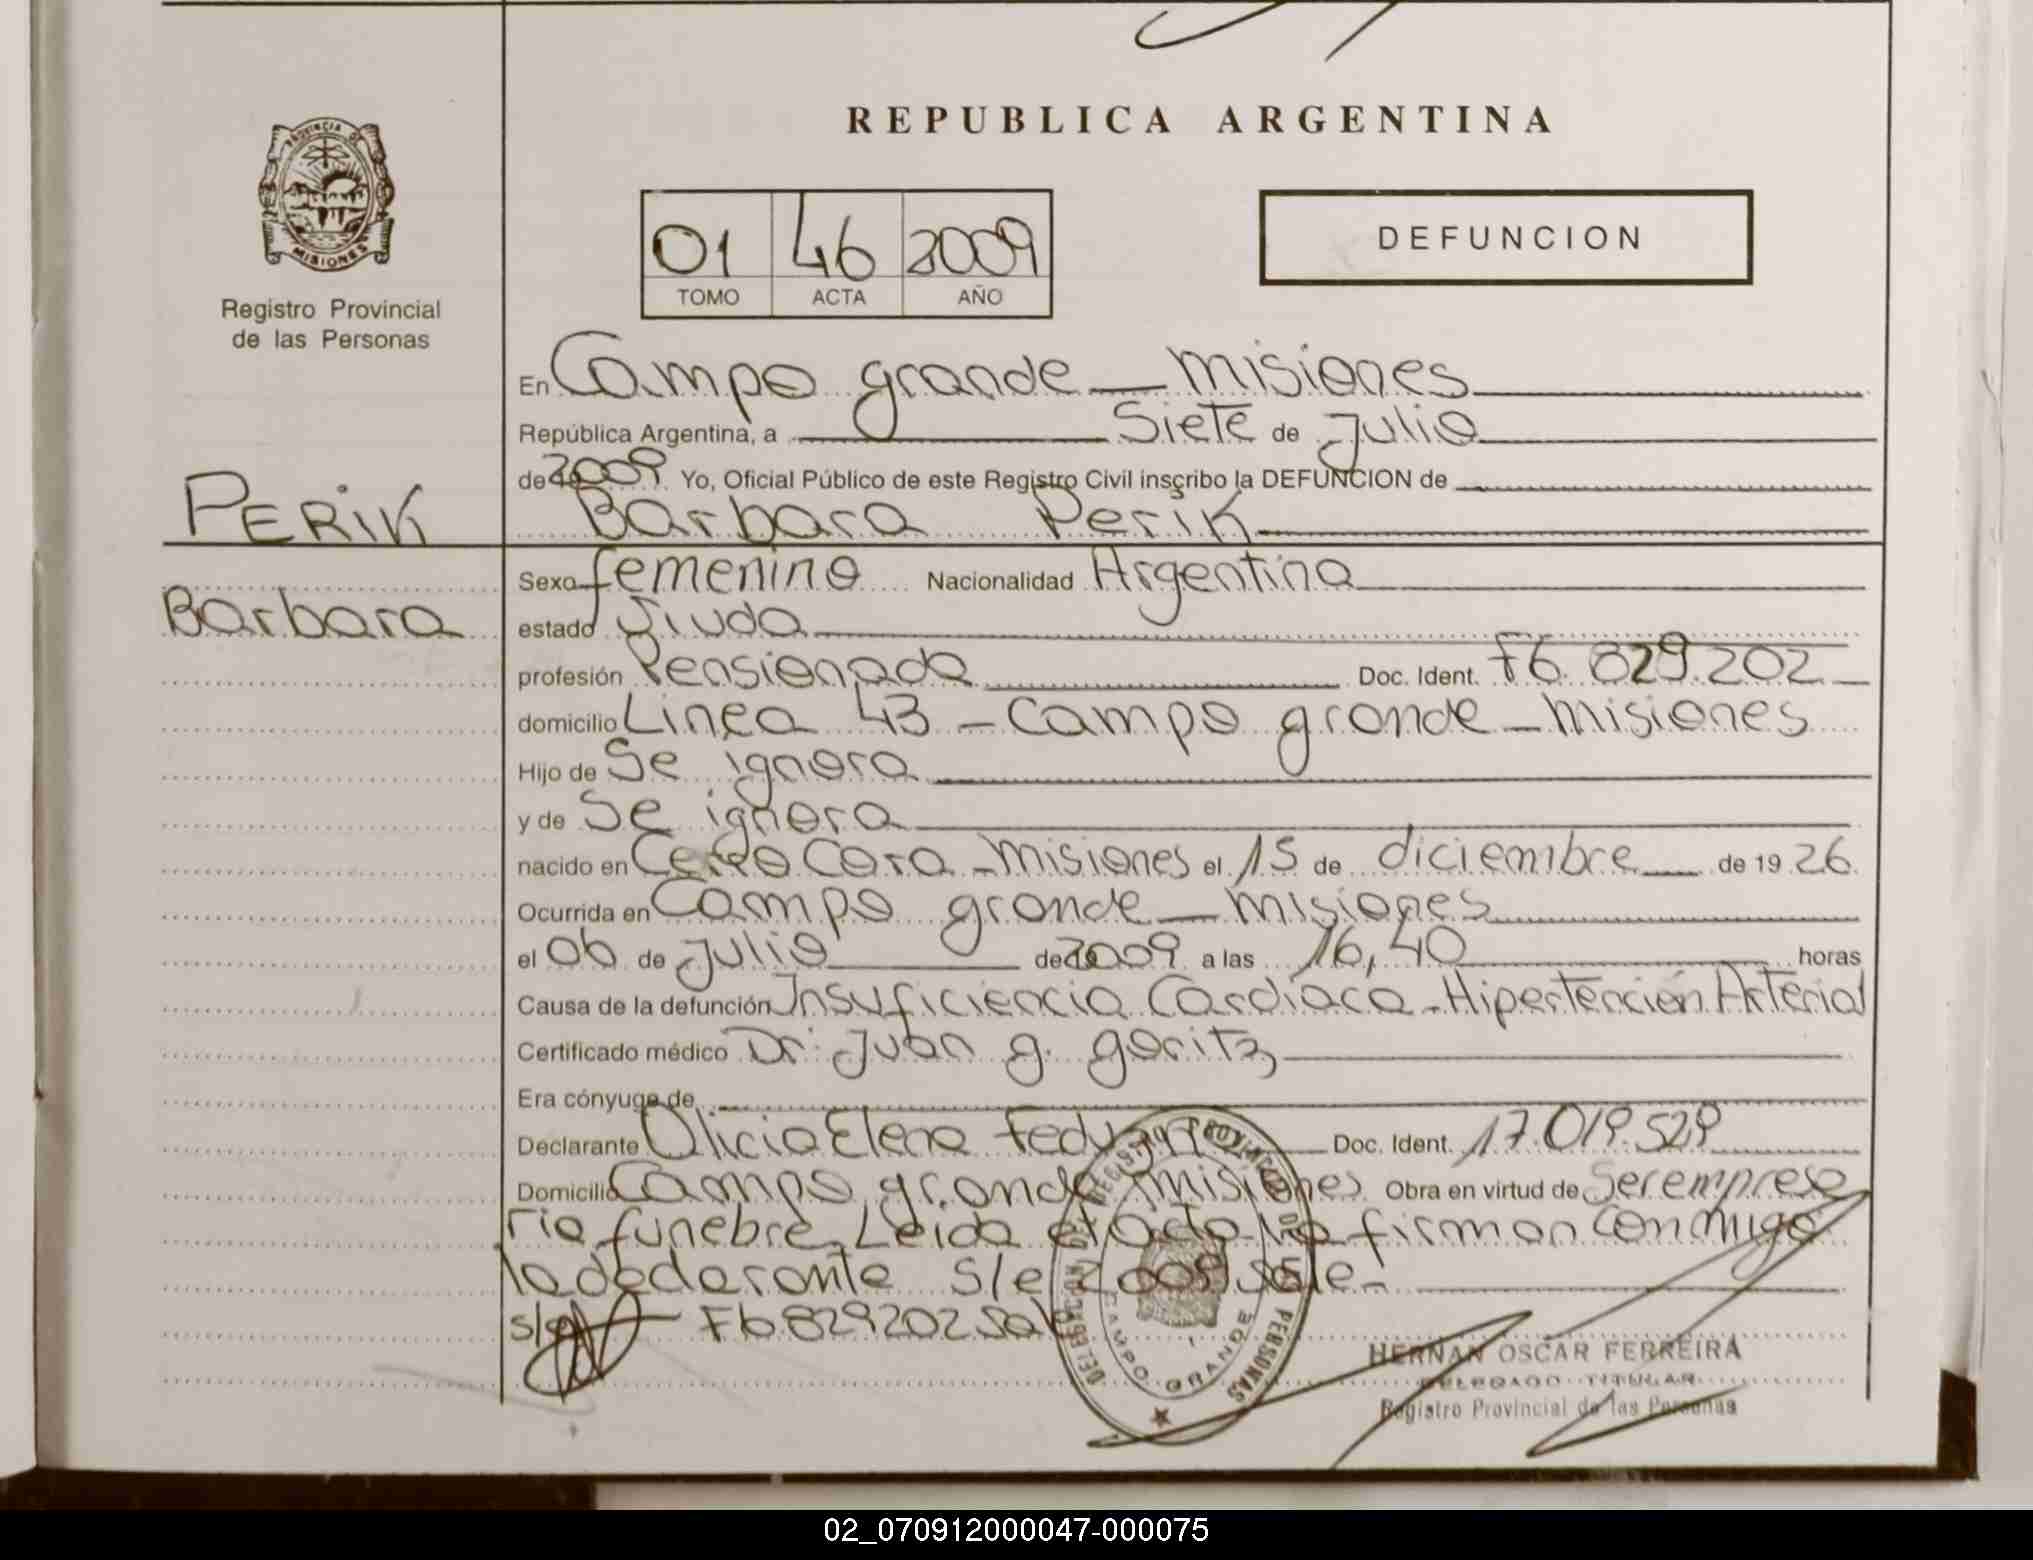 REPUBLICA ARGENTINA
PROVINCIA DE
MISIONES
Registro Provincial
de las Personas
01 46 2009
TOMO ACTA AÑO
DEFUNCION
En Campo grande - Misiones
República Argentina, a Siete de Julio
de 2009 Yo, Oficial Público de este Registro Civil inscribo la DEFUNCION de
PERIK
Barbara Perik
Sexo femenino Nacionalidad Argentina
Barbara
estado Viuda
profesión Pensionada Doc. Ident. F6.829.202
domicilio Linea 43 - Campo grande - Misiones
Hijo de Se ignora
y de Se ignora
nacido en Cerro Cora - Misiones el 15 de diciembre de 19 26
Ocurrida en Campo grande - Misiones
el 06 de Julio de 2009 a las 16,40 horas
Causa de la defunción Insuficiencia Cardíaca - Hipertención Arterial
Certificado médico Dr. Juan g. goritz
Era cónyuge de
Declarante Olicia Elena Doc. Ident. 17.019.529
Domicilio Campo grande Misiones Obra en virtud de Ser empresa
rio funebre Leida el acta la firman conmigo
la declarante s/e 2009 vale.-
F6829202 vale
DELEGACION REGISTRO PROVINCIAL DE LAS PERSONAS
CAMPO GRANDE
HERNAN OSCAR FERREIRA
DELEGADO TITULAR
Registro Provincial de las Personas
02_070912000047-000075